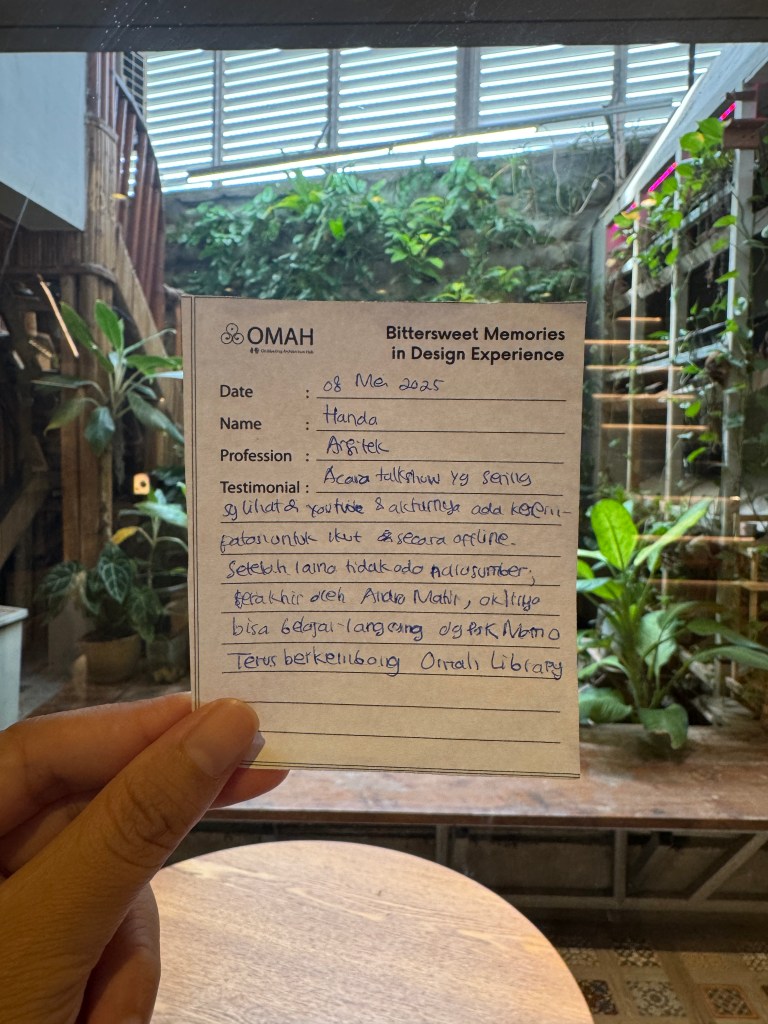 OMAH
Bittersweet Memories
in Design Experience
Date : 08 Mei 2025
Name : Handa
Profession : Arsitek
Testimonial : Acara talkshow yg sering
sy lihat di youtube & akhirnya ada kesem-
patan untuk ikut secara offline.
Setelah lama tidak ada narasumber,
terakhir oleh Andra Matin, akhirnya
bisa belajar langsung dg Pak
Terus berkembang Omah Library